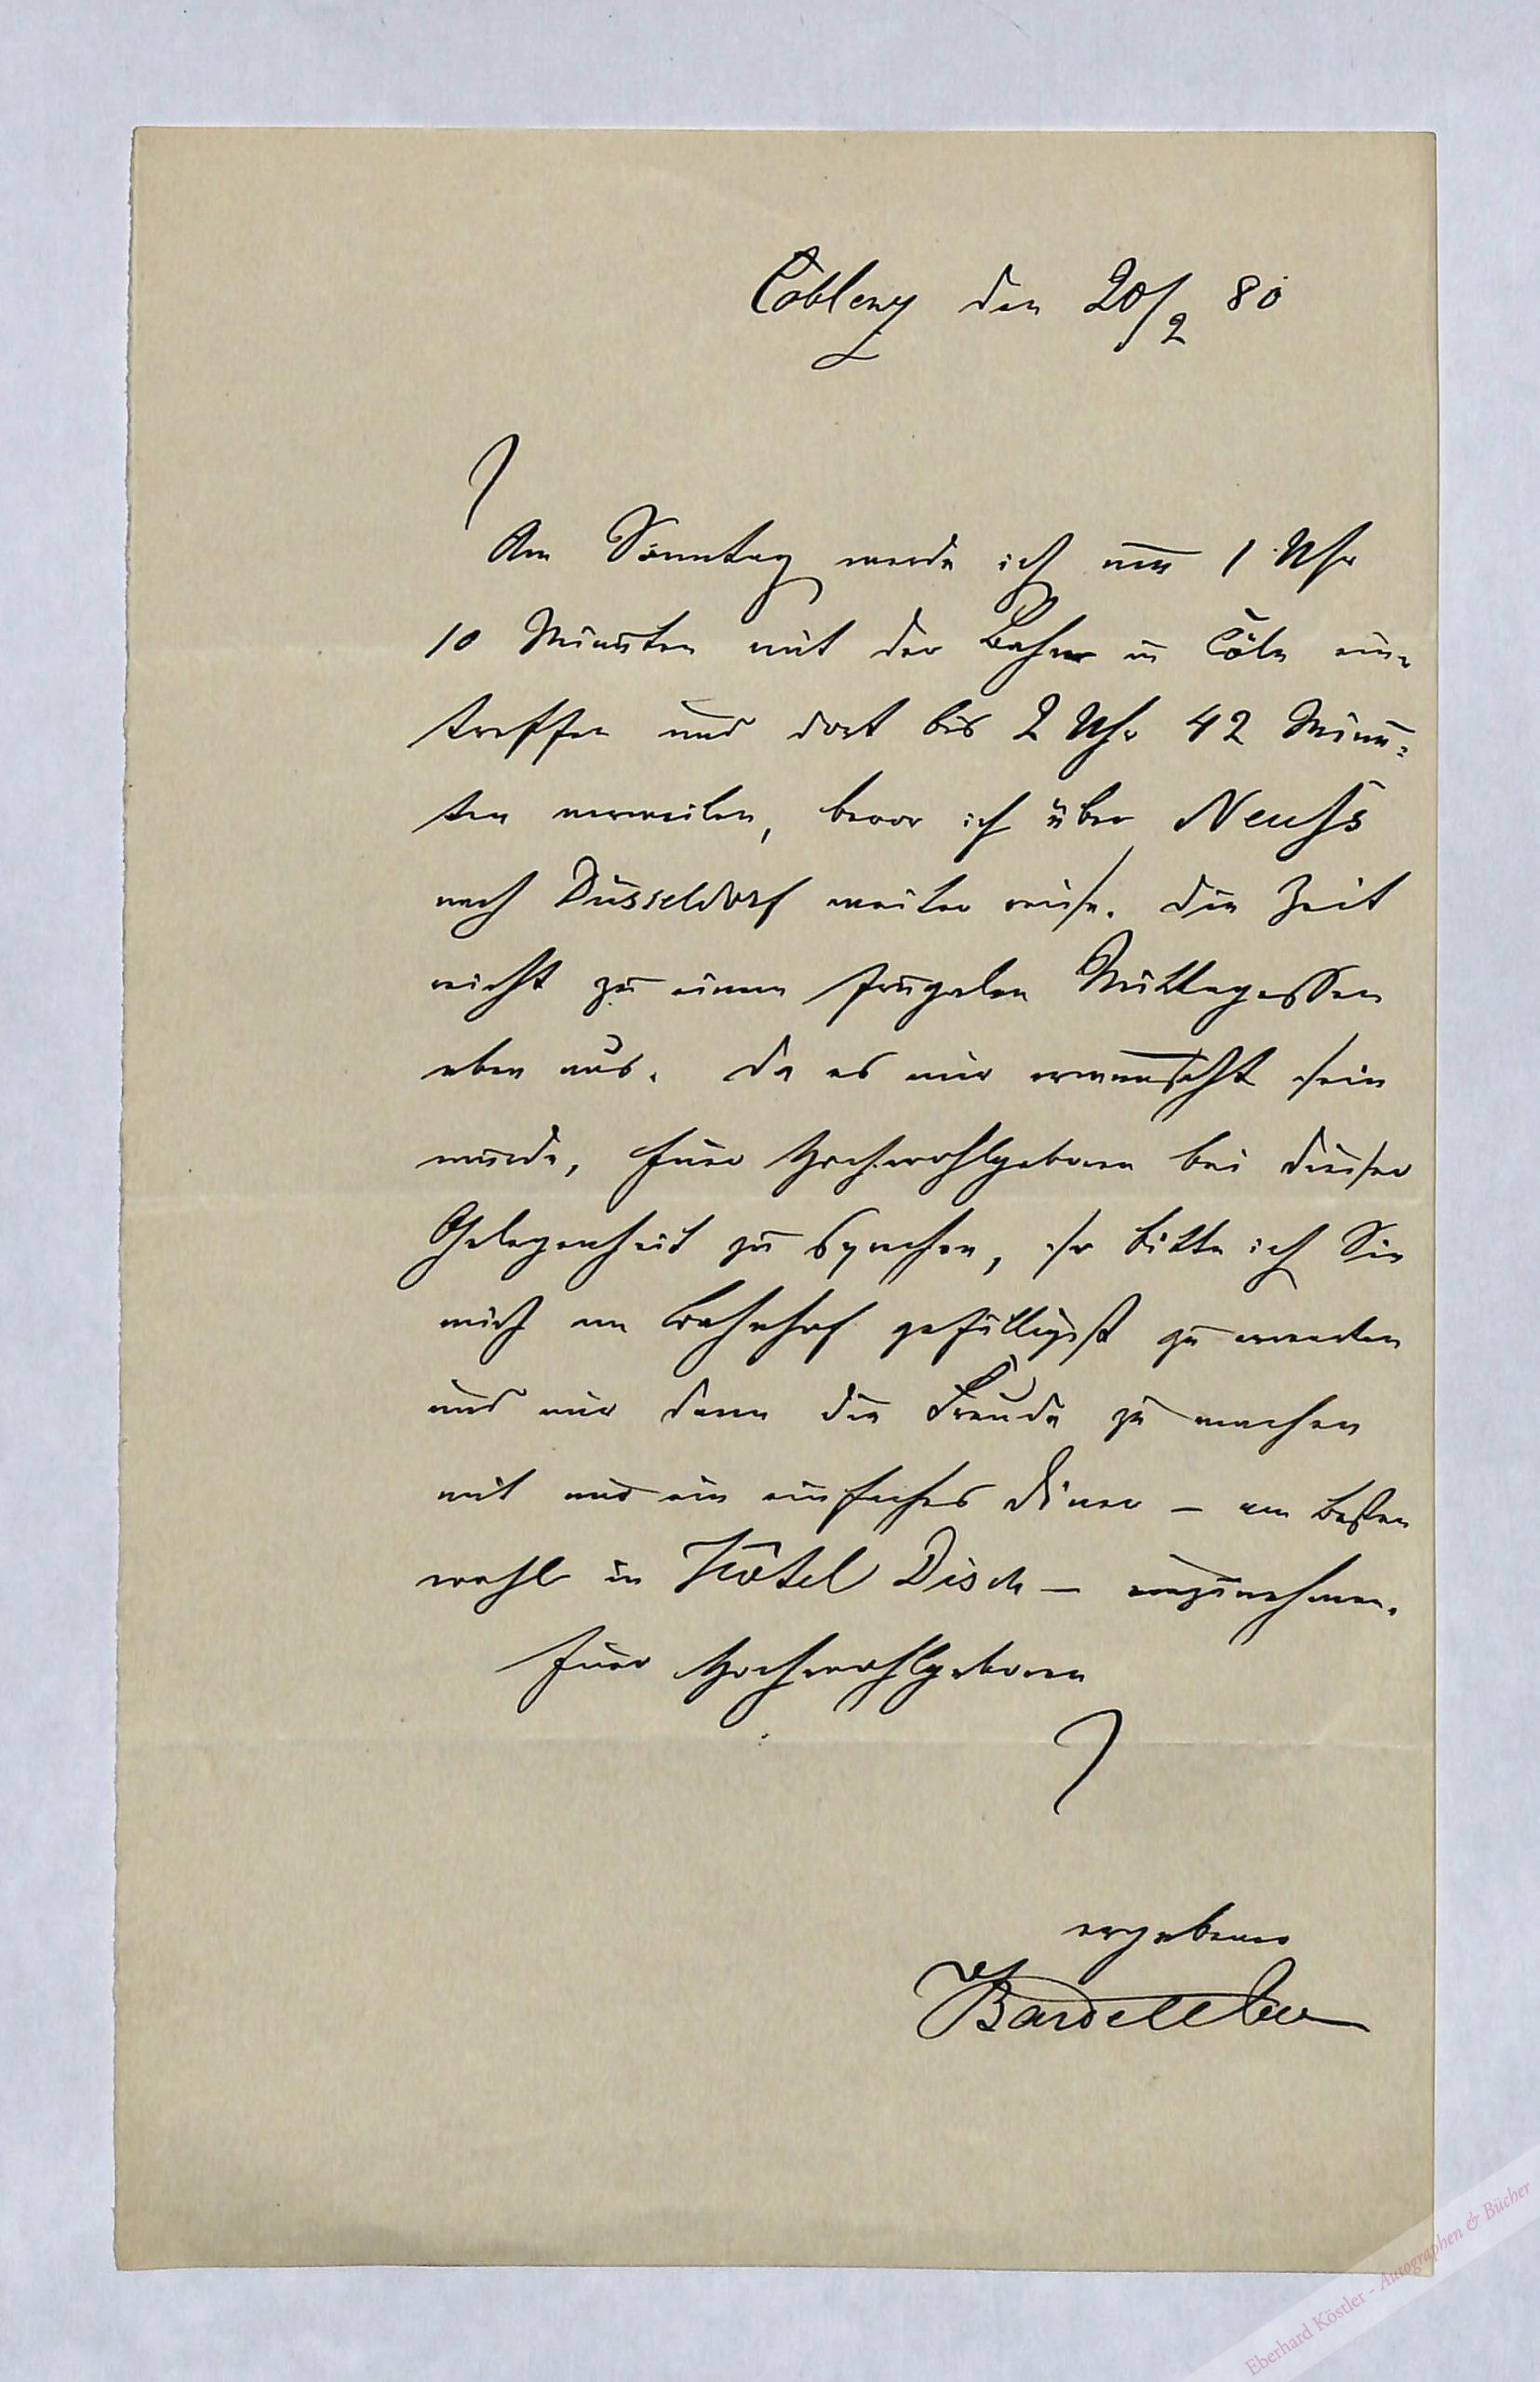 Coblenz den 20/2 80
Am Sonntag werde ich um 1 Uhr
10 Minuten mit der Bahn in Cöln ein-
treffen und dort bis 2 Uhr 42 Minu-
ten verweilen, bevor ich über Neuss
nach Düsseldorf weiter reise. Die Zeit
reicht zu einem frugalen Mittagessen
eben aus. Da es mir erwünscht sein
würde, Euer Hochwohlgeboren bei dieser
Gelegenheit zu sprechen, so bitte ich Sie
mich am Bahnhof gefälligst zu erwarten
und mir dann die Freude zu machen
mit mir ein einfaches Diner – am besten
wohl in Hôtel Disch – einzunehmen.
Euer Hochwohlgeboren
ergebener
Bardeleben
Eberhard Köstler - Autographen & Bücher